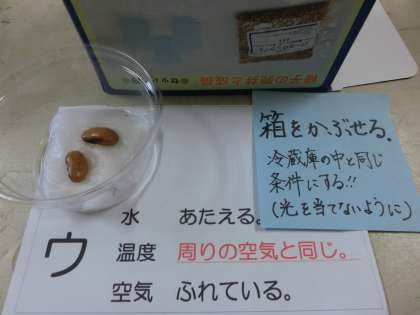 種子の発芽と成長
箱をかぶせる。
冷蔵庫の中と同じ
条件にする!!
(光を当てないように)
ウ
水 あたえる。
温度 周りの空気と同じ。
空気 ふれている。